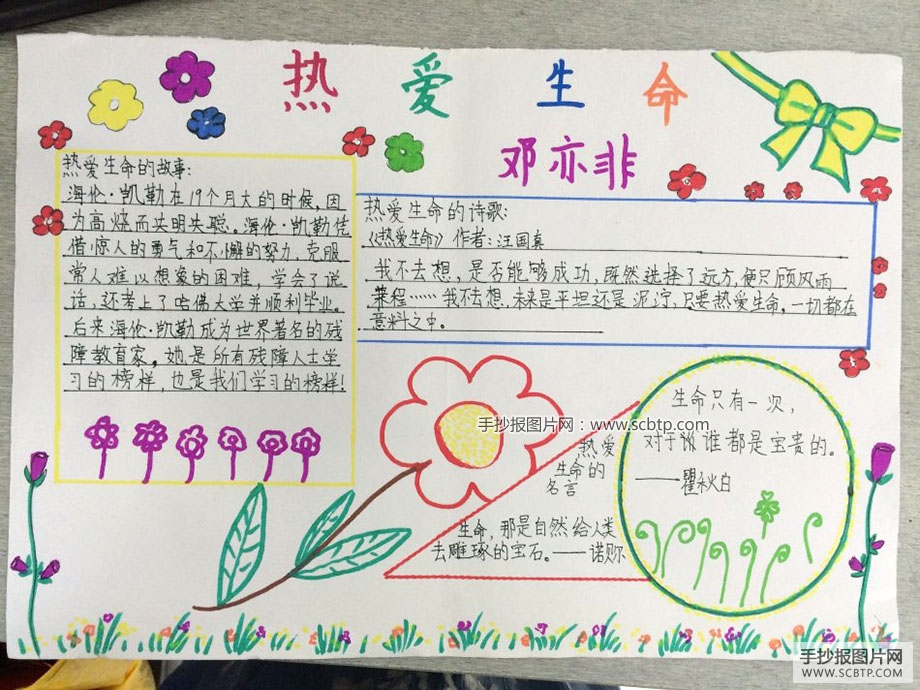 热爱生命
邓亦非
热爱生命的故事:
海伦·凯勒在19个月大的时候,因
为高烧而失明失聪。海伦·凯勒凭
借惊人的勇气和不懈的努力,克服
常人难以想象的困难,学会了说
话,还考上了哈佛大学并顺利毕业。
后来海伦·凯勒成为世界著名的残
障教育家。她是所有残障人士学
习的榜样,也是我们学习的榜样!
热爱生命的诗歌:
《热爱生命》作者:汪国真
我不去想,是否能够成功,既然选择了远方,便只顾风雨
兼程……我不去想,未来是平坦还是泥泞,只要热爱生命,一切都在
意料之中。
手抄报图片网:www.scbtp.com
热爱
生命的
名言
生命,那是自然给人类
去雕琢的宝石。——诺贝尔
生命只有一次,
对于谁都是宝贵的。
——瞿秋白
手抄报图片网
WWW.SCBTP.COM